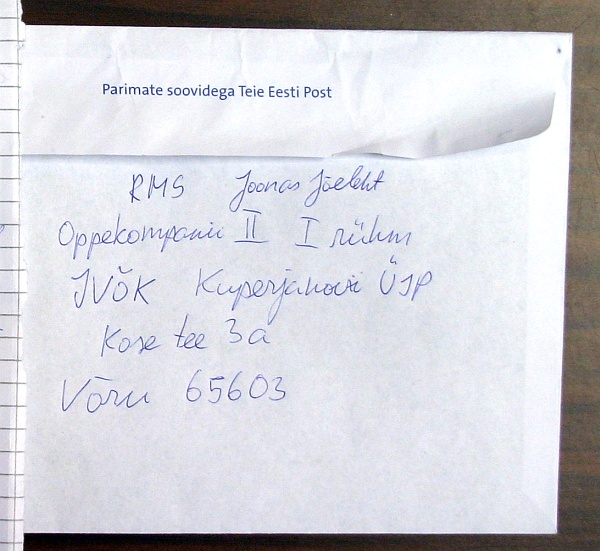 Parimate soovidega Teie Eesti Post
RMS Joonas Jõeleht
Oppekompanii II I rühm
JVÕK Kuperjanovi ÜJP
Kose tee 3a
Võru 65603